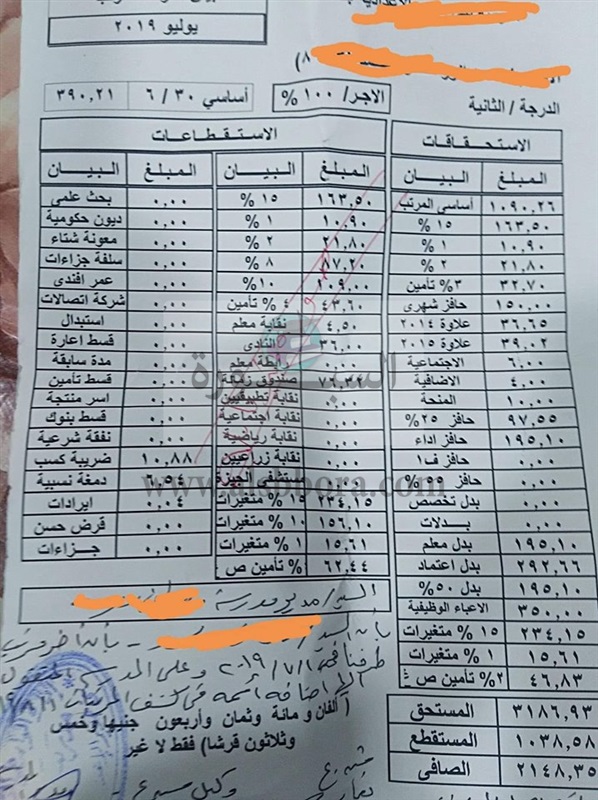 يوليو ٢٠١٩
الدرجة / الثانية
الاجر/ ١٠٠ %
أساسي ٣٠ / ٦
٣٩٠,٢١
الاستحقاقات
المبلغ البيان
١٠٩٠,٢٦ أساسى المرتب
١٦٣,٥٠ ١٥ %
١٠,٩٠ ١ %
٢١,٨٠ ٢ %
٣٢,٧٠ ٣% تأمين
١٥٠,٠٠ حافز شهرى
٣٦,٦٥ علاوة ٢٠١٤
٣٩,٠٢ علاوة ٢٠١٥
٦,٠٠ الاجتماعية
٤,٠٠ الاضافية
١٠,٠٠ المنحة
٩٧,٥٥ حافز ٢٥%
١٩٥,١٠ حافز اداء
٠,٠٠ حافز ف١
٠,٠٠ حافز ٥٥ %
٠,٠٠ بدل تخصص
٠,٠٠ بدلات
١٩٥,١٠ بدل معلم
٢٩٢,٦٦ بدل اعتماد
١٩٥,١٠ بدل ٥٠%
٣٥٠,٠٠ الاعباء الوظيفية
٢٣٤,١٥ ١٥ % متغيرات
١٥,٦١ ١ % متغيرات
٤٦,٨٣ ٢% تأمين ص
٣١٨٦,٩٣ المستحق
١٠٣٨,٥٨ المستقطع
٢١٤٨,٣٥ الصافى
الاستقطاعات
المبلغ البيان
١٦٣,٥٠ ١٥ %
١٠,٩٠ ١ %
٢١,٨٠ ٢ %
٨٧,٢٠ ٨ %
١٠٩,٠٠ ١٠%
٤٣,٦٠ ٤ % تأمين
٤,٥٠ نقابة معلم
٣٦,٠٠ النادى
٠,٠٠ رابطة معلم
٧٦,٣٤ صندوق زمالة
٠,٠٠ نقابة تطبيقيين
٠,٠٠ نقابة اجتماعية
٠,٠٠ نقابة رياضية
٠,٠٠ نقابة زراعيين
٠,٠٠ مستشفى الجيزة
٢٣٤,١٥ ١٥ % متغيرات
١٥٦,١٠ ١٠ % متغيرات
١٥,٦١ ١ % متغيرات
٦٢,٤٤ % تأمين ص
المبلغ البيان
٠,٠٠ بحث علمى
٠,٠٠ ديون حكومية
٠,٠٠ معونة شتاء
٠,٠٠ سلفة جزاءات
٠,٠٠ عمر افندى
٠,٠٠ شركة اتصالات
٠,٠٠ استبدال
٠,٠٠ قسط اعارة
٠,٠٠ مدة سابقة
٠,٠٠ قسط تأمين
٠,٠٠ اسر منتجة
٠,٠٠ قسط بنوك
٠,٠٠ نفقة شرعية
١٠,٨٨ ضريبة كسب
٦,٥٤ دمغة نسبية
٠,٠٤ ايرادات
٠,٠٠ قرض حسن
٠,٠٠ جزاءات
السيد/ مدير مدرسة
بأن السيد/ بأن آخر مرتب
طرفنا فى ٢٠١٩/٧/١ وعلى المدرسة المنقول
إليها اضافة أسمه فى كشف المرتبات
( ألفان و مائة وثمان وأربعون جنيها وخمس
وثلاثون قرشا) فقط لا غير
وكيل
السبورة